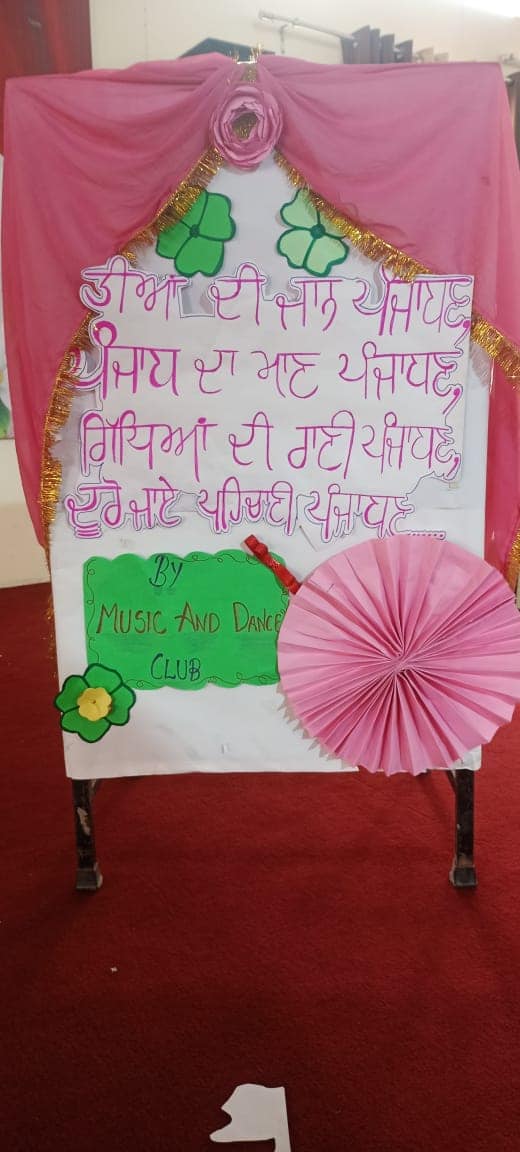 ਤੀਆਂ ਦੀ ਜਾਨ ਪੰਜਾਬਣ,
ਪੰਜਾਬ ਦਾ ਮਾਣ ਪੰਜਾਬਣ,
ਗਿੱਧਿਆਂ ਦੀ ਰਾਣੀ ਪੰਜਾਬਣ,
ਦੂਰੋਂ ਜਾਏ ਪਹਿਚਾਣੀ ਪੰਜਾਬਣ......
BY
MUSIC AND DANCE
CLUB